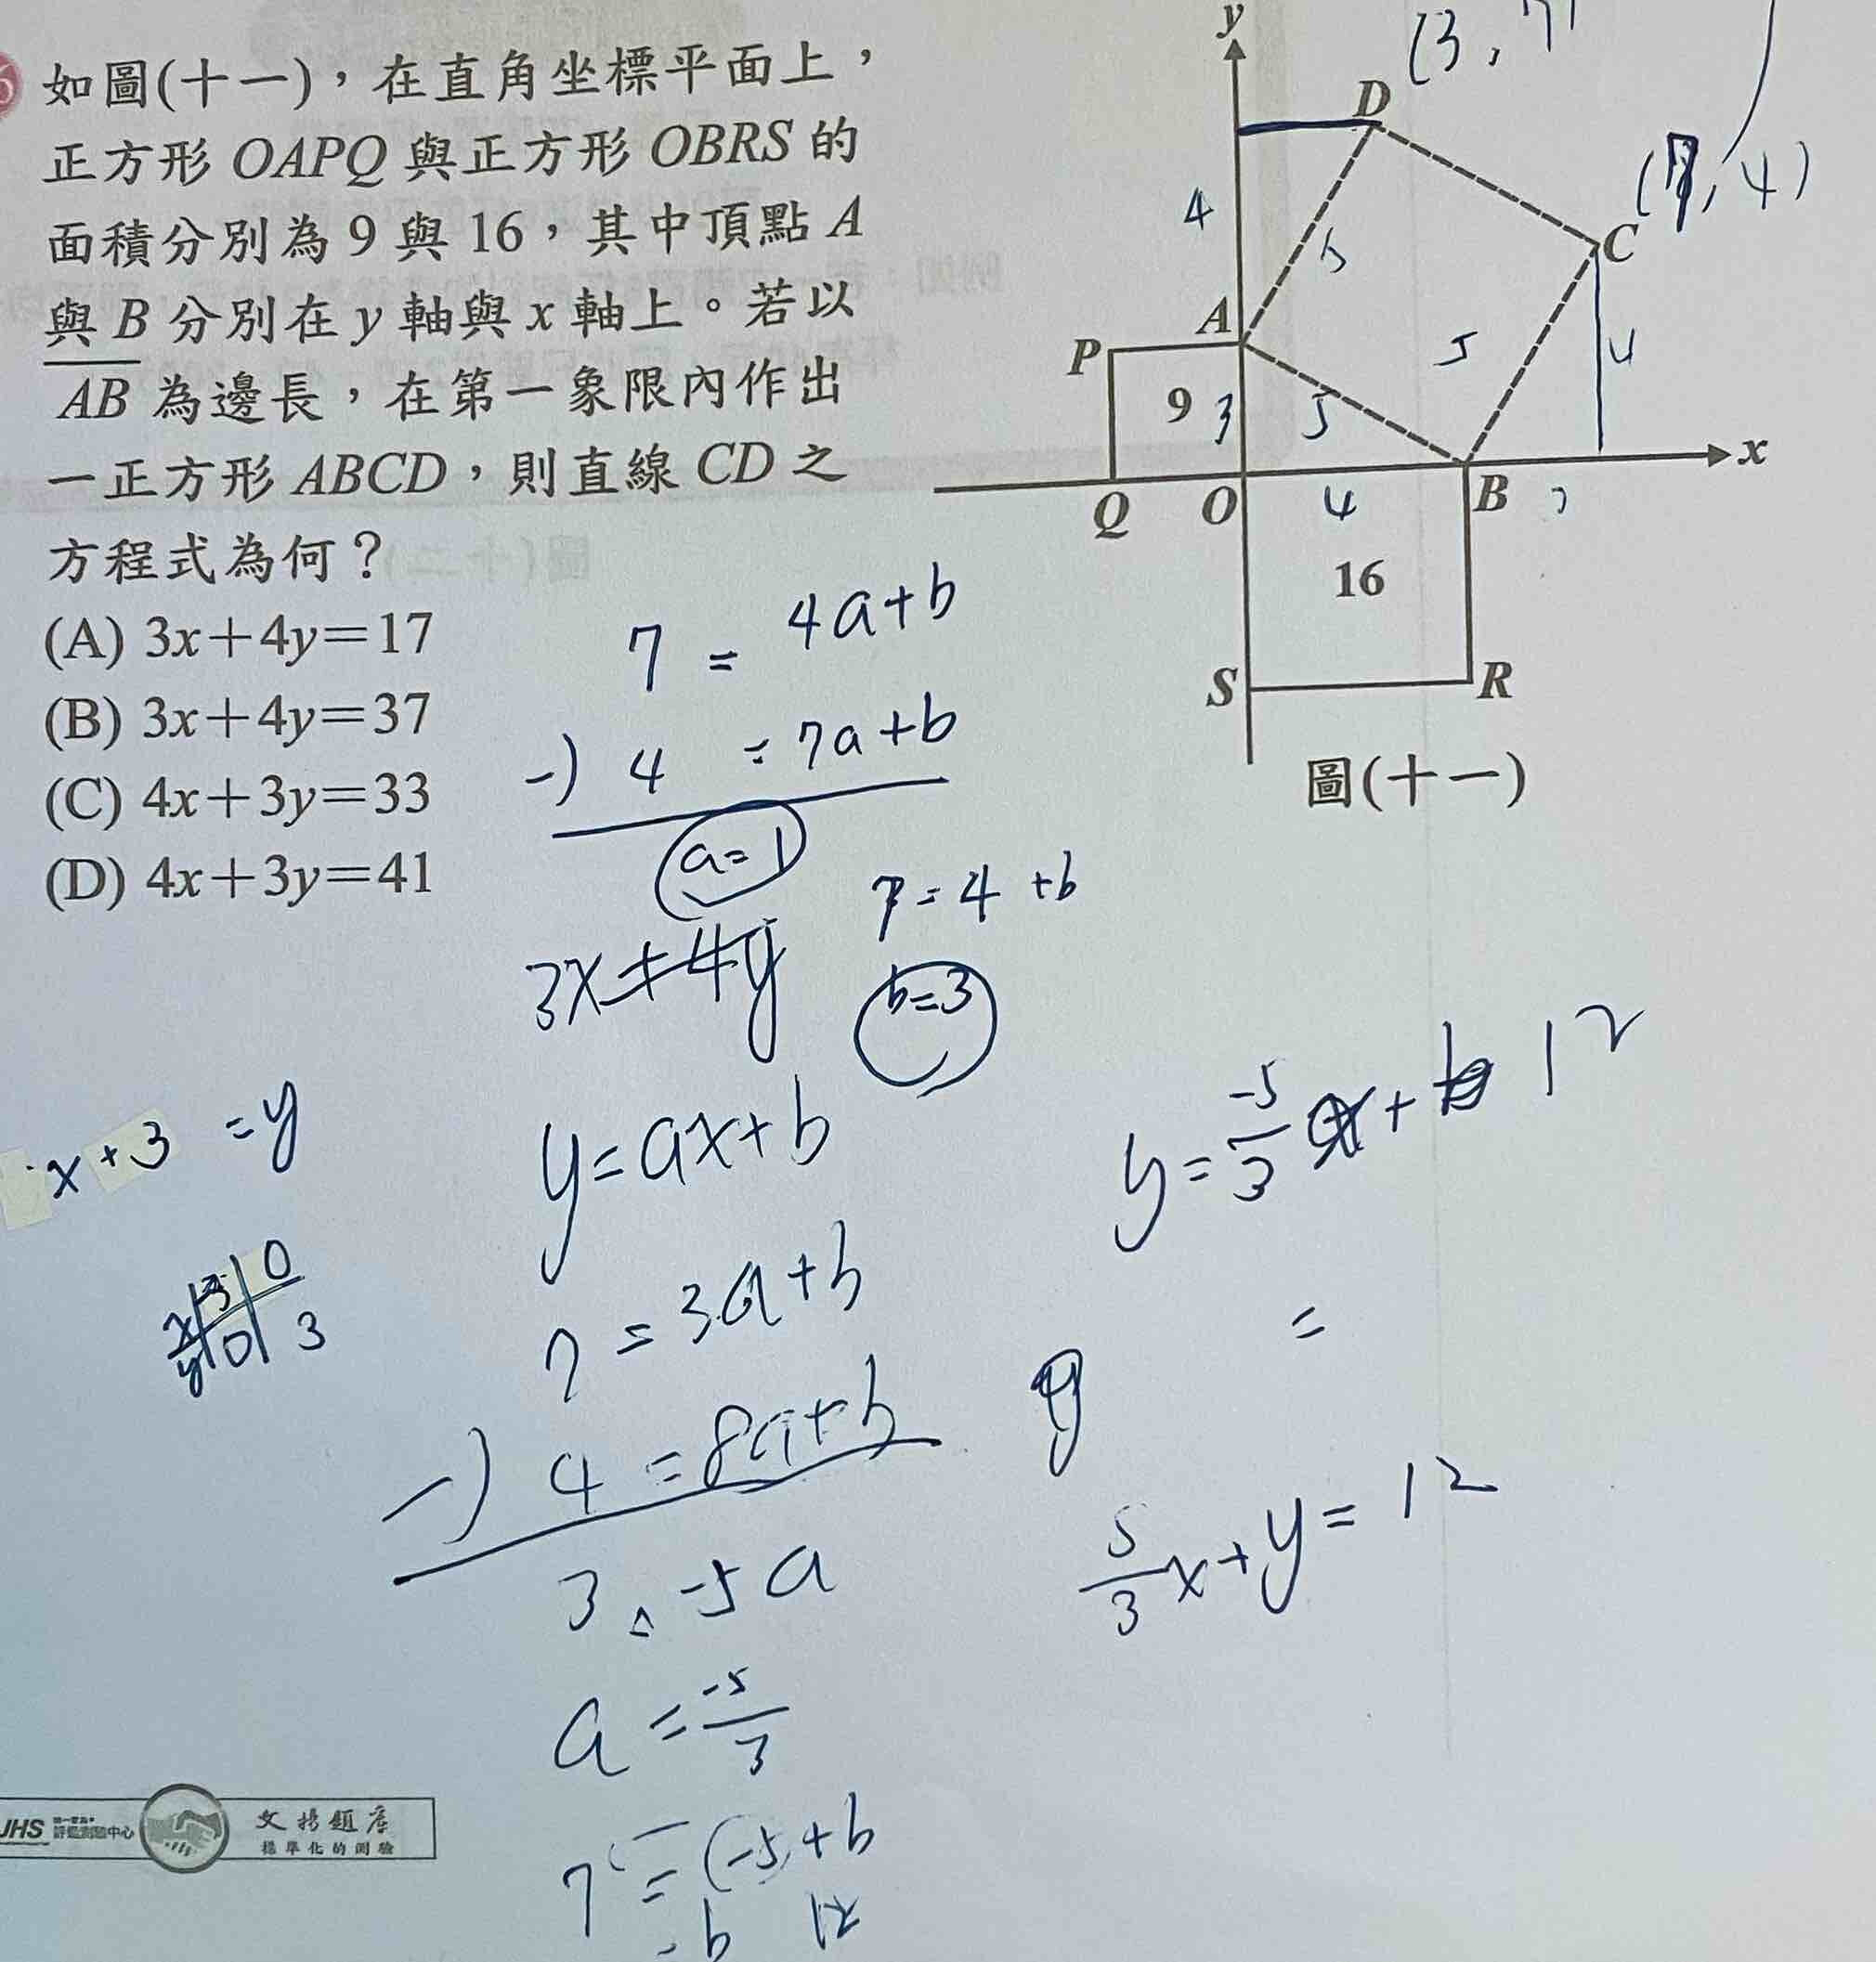 如圖(十一)，在直角坐標平面上，
正方形 OAPQ 與正方形 OBRS 的
面積分別為 9 與 16，其中頂點 A
與 B 分別在 y 軸與 x 軸上。若以
AB 為邊長，在第一象限內作出
一正方形 ABCD，則直線 CD 之
方程式為何？
(A) 3x＋4y＝17
(B) 3x＋4y＝37
(C) 4x＋3y＝33
(D) 4x＋3y＝41
y
D
(3, 7
C
, 4)
4
A
5
4
P
9
3
5
x
Q
O
4
B
16
S
R
圖(十一)
7 = 4a+b
-) 4 = 7a+b
a=1
7=4+b
3x+4y
b=3
x+3 =y
y=ax+b
y=-5/3 x+ 12
x 3 0
y 0 3
7=3a+b
=
-) 4=8a+b
y
3=-5a
5/3 x+y=12
a=-5/3
7=(-5+b
=b 12
JHS
評量測驗中心
文揚題庫
標準化的測驗